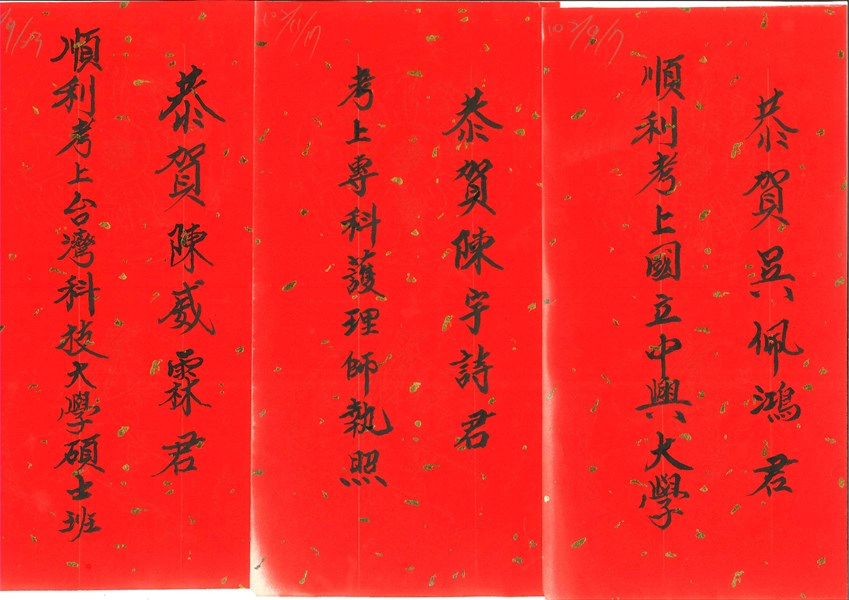 恭賀吳佩鴻君
順利考上國立中興大學
恭賀陳宇詩君
考上專科護理師執照
恭賀陳威霖君
順利考上台灣科技大學碩士班